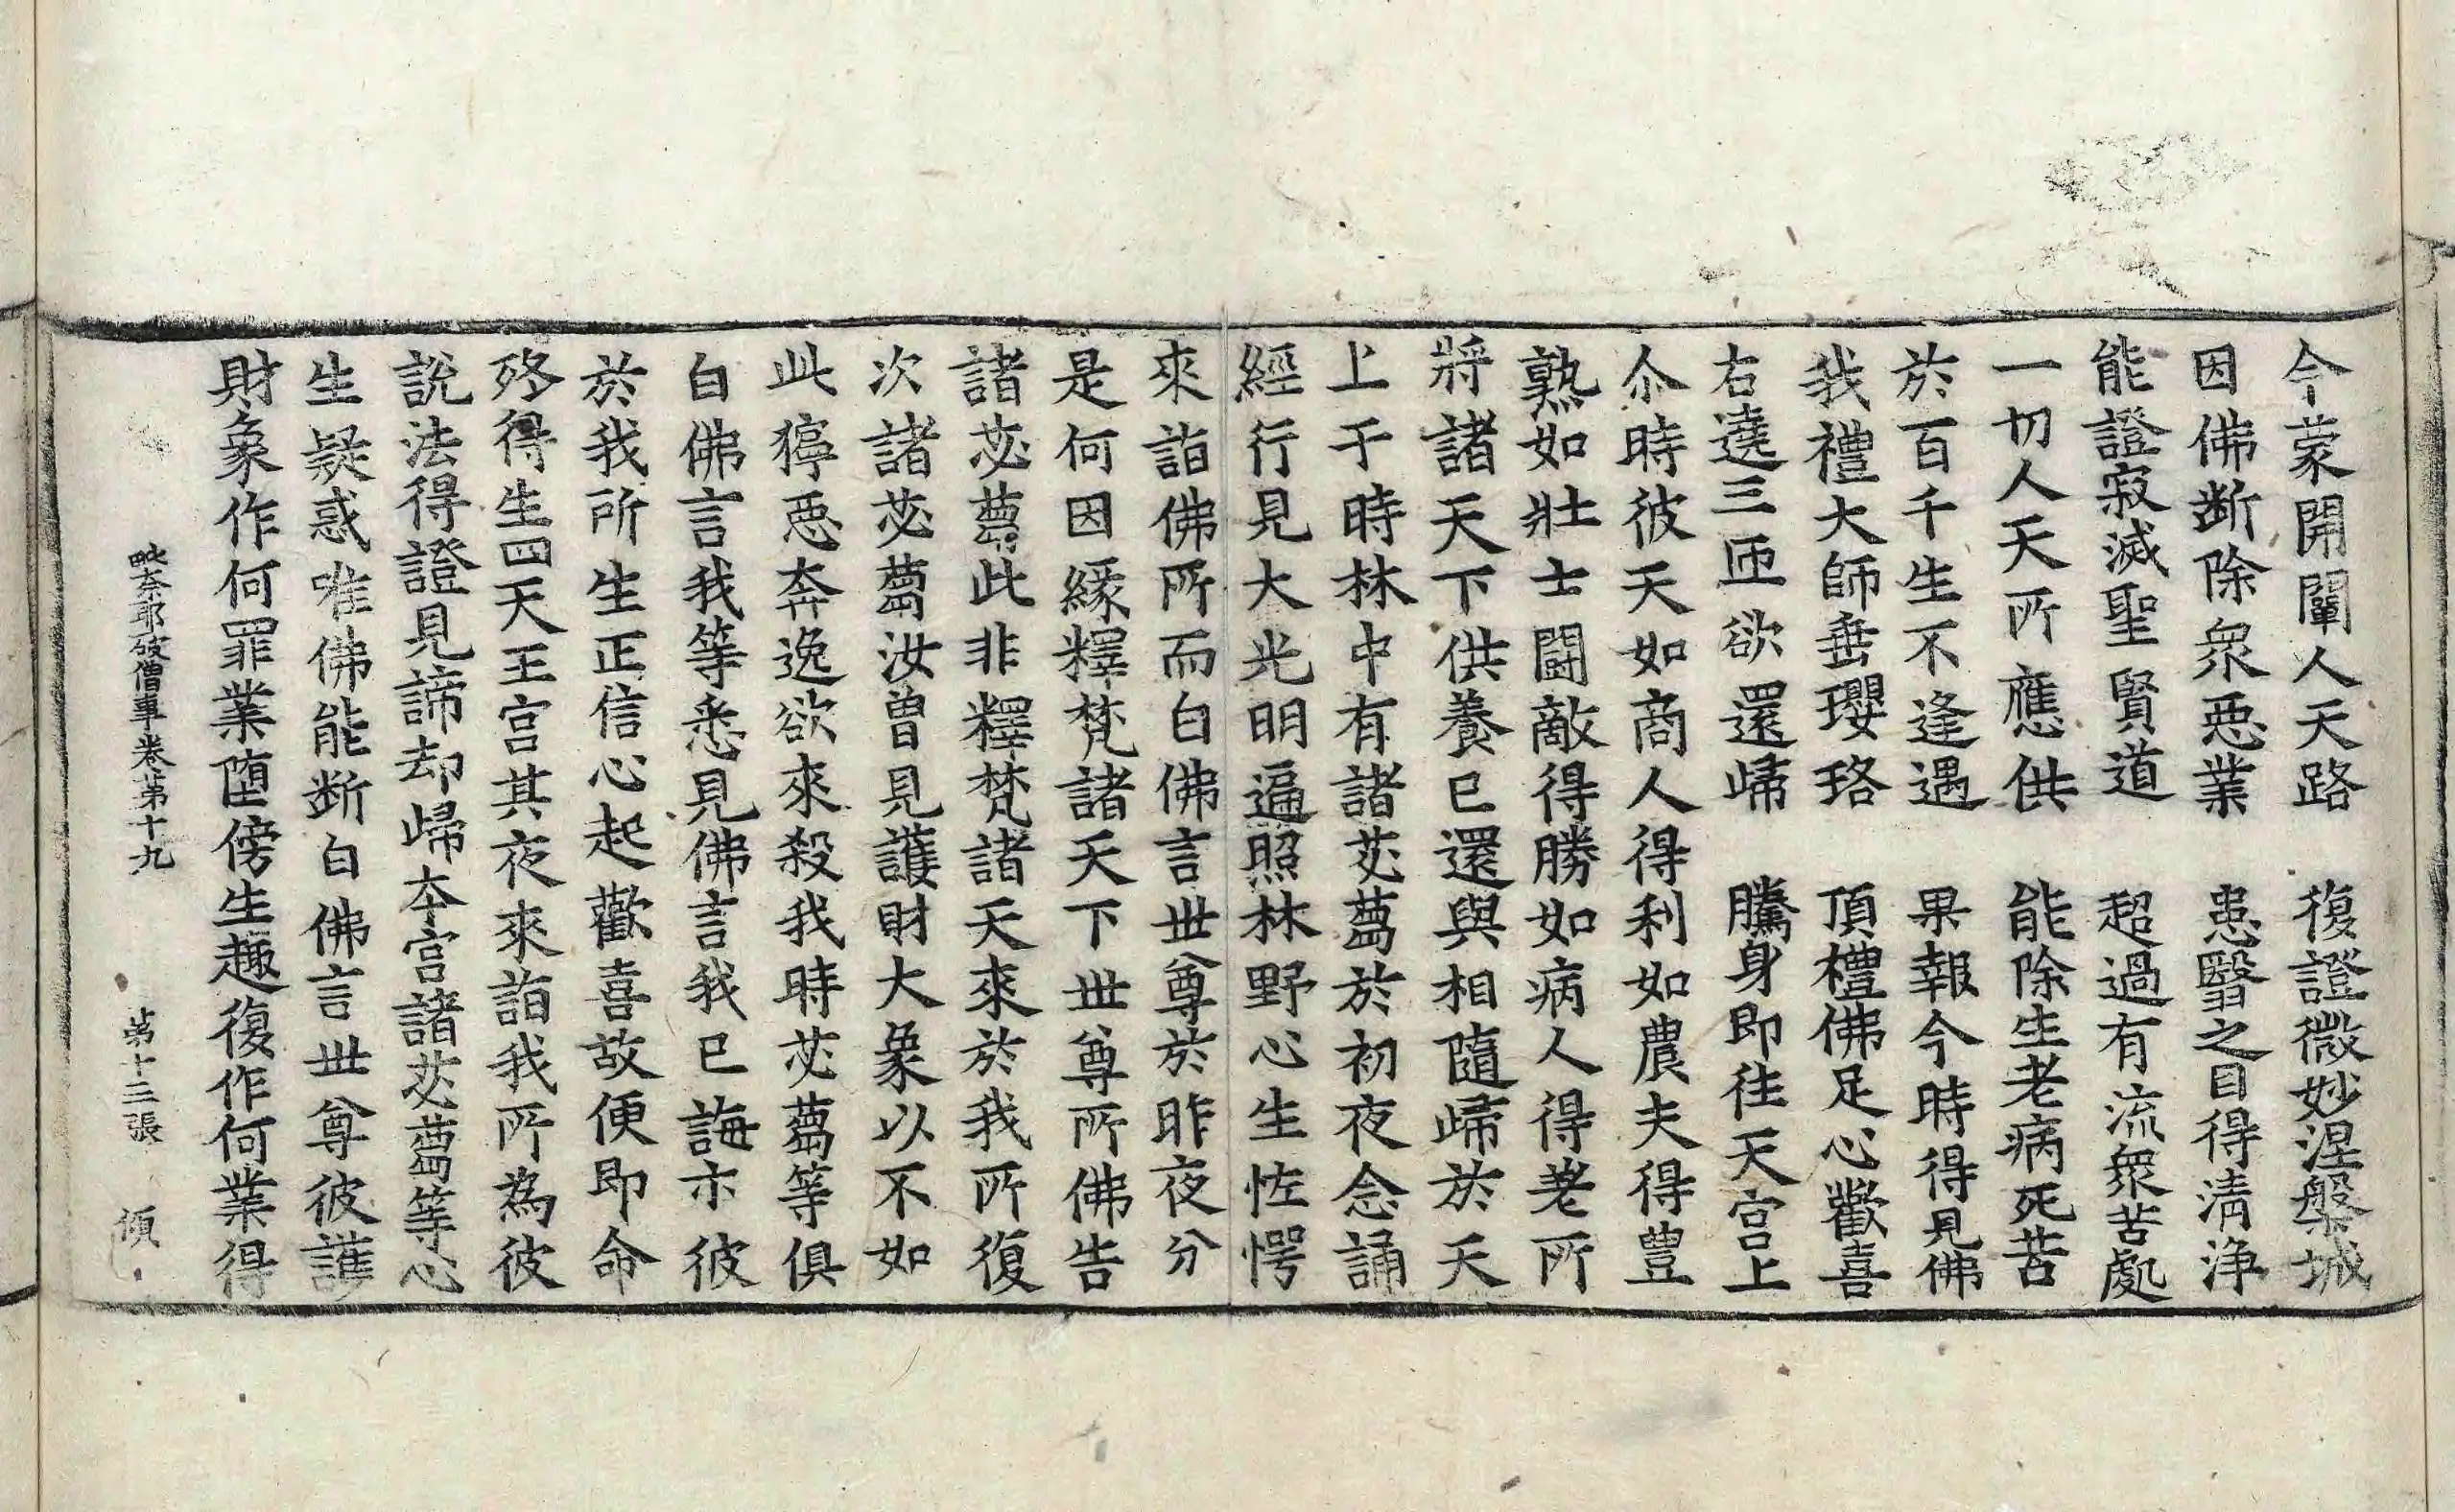 今蒙開闡人天路　復證微妙涅槃城
因佛斷除衆惡業　患翳之目得清淨
能證寂滅聖賢道　超過有流衆苦處
一切人天所應供　能除生老病死苦
於百千生不逢遇　果報今時得見佛
我禮大師垂瓔珞　頂禮佛足心歡喜
右遶三匝欲還歸　騰身即往天宮上
尒時彼天如商人得利如農夫得豊
熟如壯士鬪敵得勝如病人得差所
將諸天下供養已還與相隨歸於天
上于時林中有諸苾蒭於初夜念誦
經行見大光明遍照林野心生恠愕
來詣佛所而白佛言世尊於昨夜分
是何因緣釋梵諸天下世尊所佛告
諸苾蒭此非釋梵諸天來於我所復
次諸苾蒭汝曾見護財大象以不如
此獰惡奔逸欲來殺我時苾蒭等俱
白佛言我等悉見佛言我已誨示彼
於我所生正信心起歡喜故便即命
終得生四天王宮其夜來詣我所為彼
說法得證見諦却歸本宮諸苾蒭等心
生疑惑唯佛能斷白佛言世尊彼護
財象作何罪業墮傍生趣復作何業得
毗奈耶破僧事卷第十九　第十三張　傾